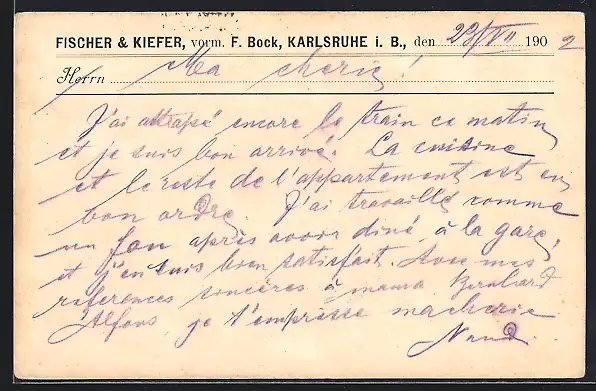 FISCHER & KIEFER, vorm. F. Bock, KARLSRUHE i. B., den 29/VII 1902
Herrn Ma cherie!
J'ai attrapé encore le train ce matin
et je suis bon arrivé. La cuisine
et le reste de l'appartement est en
bon ordre. J'ai travaillé comme
un fou après avoir diné à la gare,
et j'en suis bien satisfait. Avec mes
références sincères à mama Bernhard
Alfons, je t'empresse ma cherie